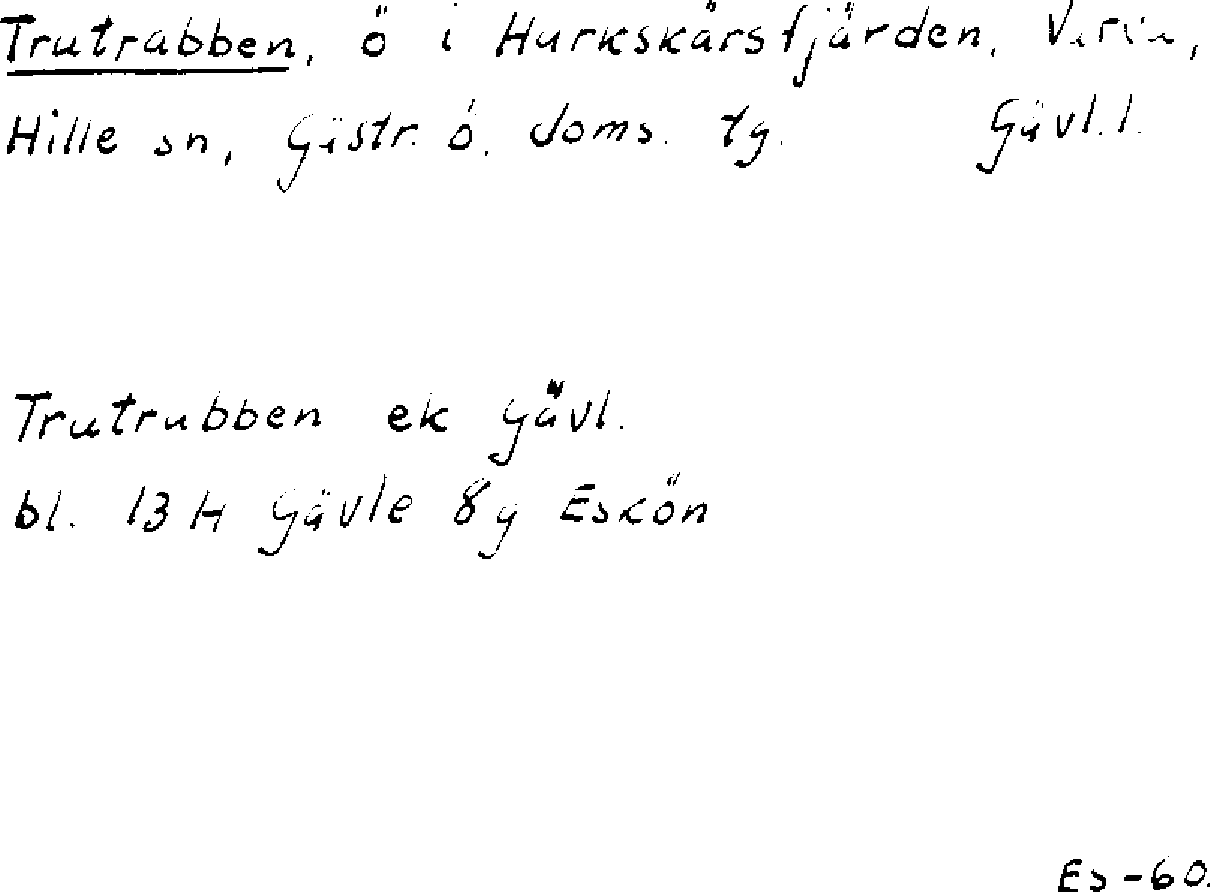 Trutrabben, ö i Harkskärsfjärden,
Hille sn, Gästr. ö. doms. tg. Gävl. l.
Trutrabben ek Gävl.
bl. 13 H Gävle 8g Eskön
Es-60.